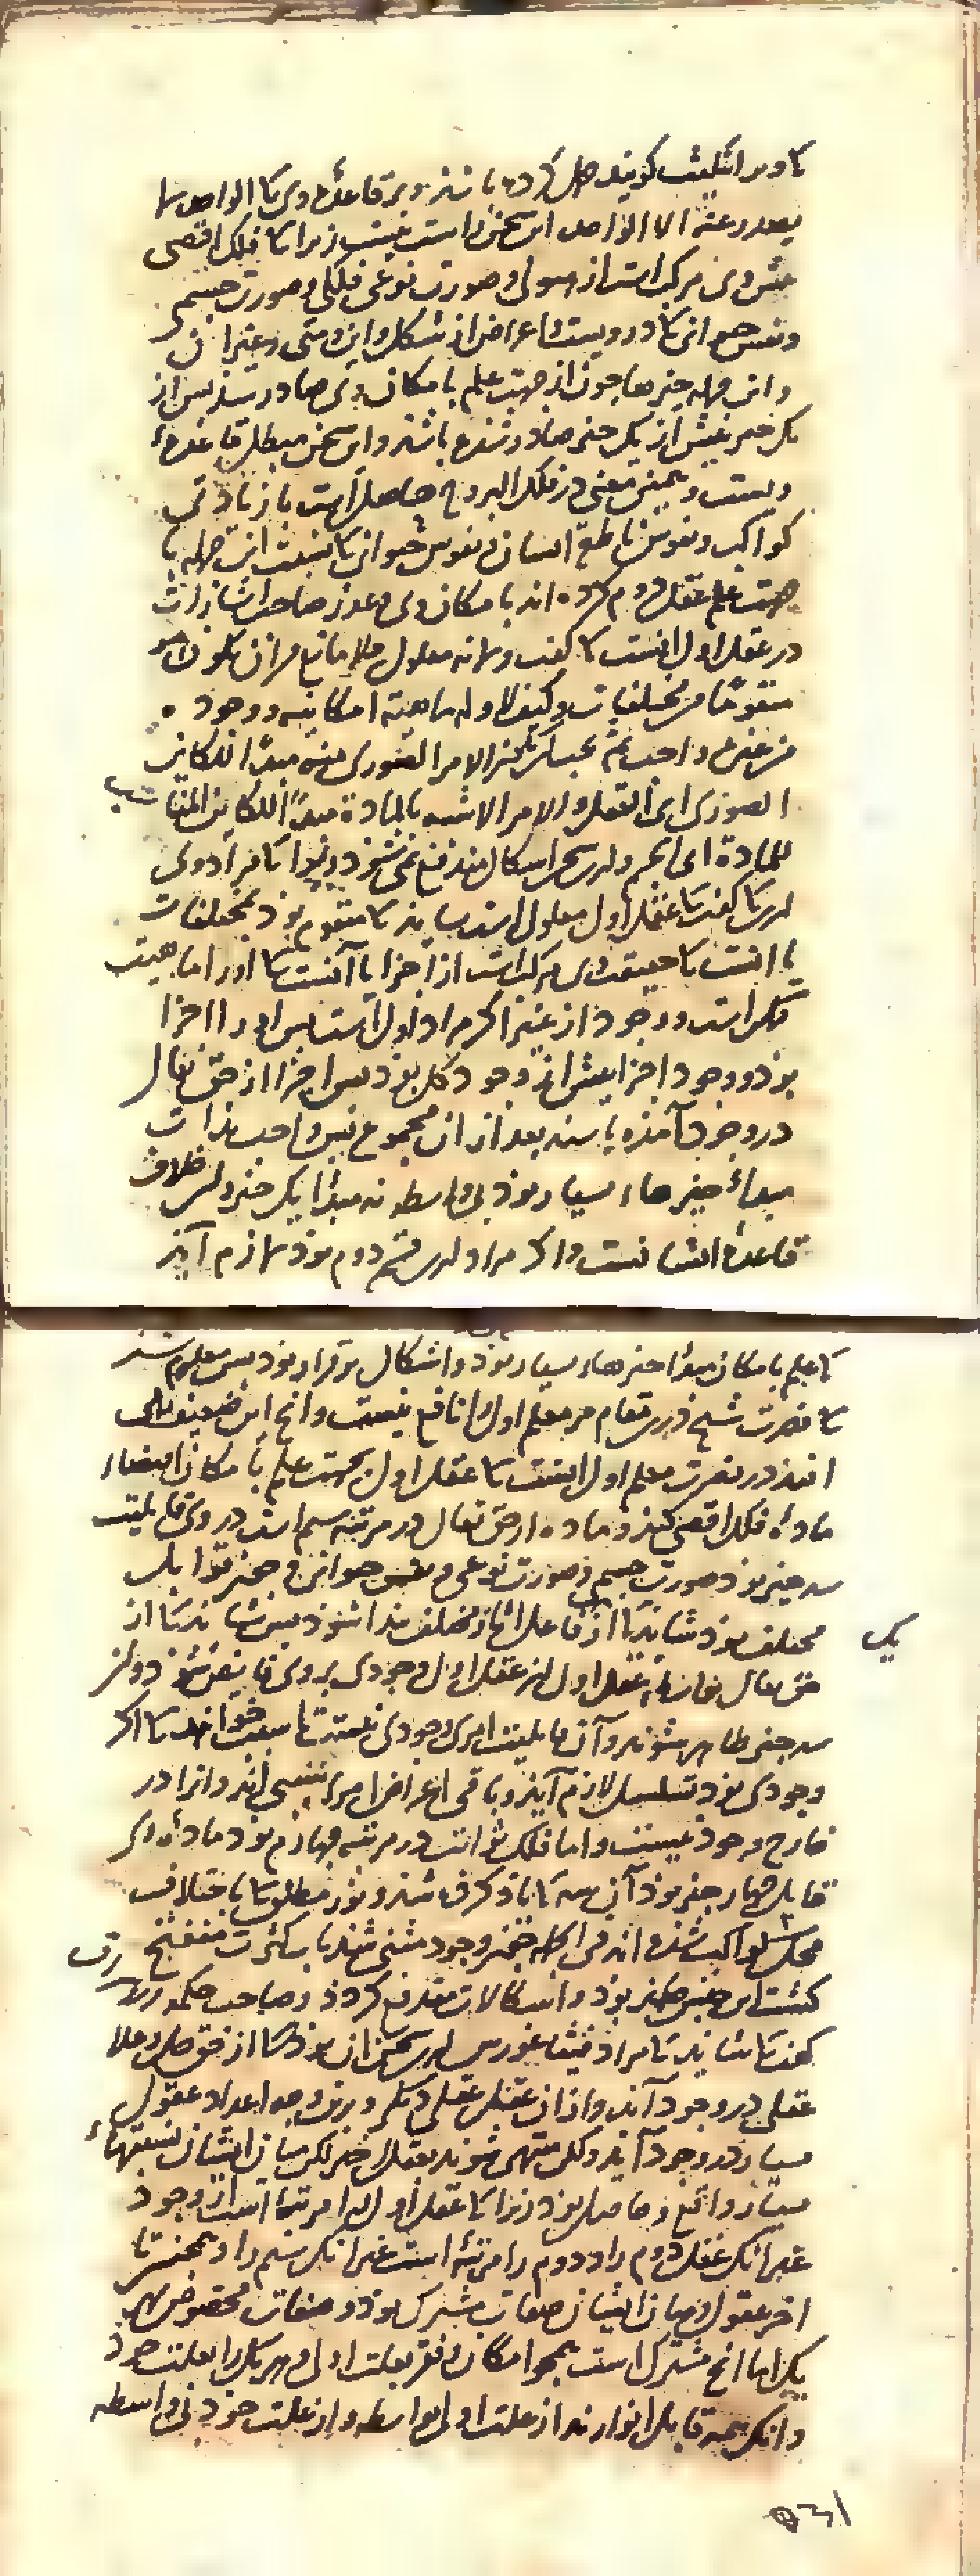 کا ویرا تثلیث کویند حل کرده باشند و بر قاعدهٔ وی کا الواحد لا
یصدر عنه الا الواحد این سخن راست نیست زیرا کا فلک اقصی
پیش وی مرکب است از هیولی و صورت نوعی فلکی و صورت جسم
و نفس حیوانی کا در ویست و اعراض از شکل و این و متی و غیر آن
و این جمله چیزها چون از جهت علم بامکان وی صادر شد پس از
یک چیز بیش از یک چیز صادر شده باشد و این سخن مبطل قاعدهٔ
ویست و همین معنی در فلک البروج حاصل است با زیادتی
کواکب و نفوس ناطقهٔ انسان و نفوس حیوانی کا نسبت این جمله با
جهت علم عقل دوم کرده اند بامکان وی و عذر صاحب اشارات
در عقل اول اینست کا گفت ولانه معلول فلا مانع من ان یکون هو
متقوما من مختلفات وکیف لا وله ماهیة امکانیه ووجود
من غیره واجب ثم یجب ان یکون الامر الصوری منه مبدأ للکاین
الصوری ای العقل والامر الاشبه بالمادة مبدأ للکاین المناسب
للمادة ای الجرم ولین سخن اشکال مندفع نمی شود زیرا کا مراد وی
از آن کا گفت کا عقل اول معلول است شاید کا متقوم بود بمختلفات
یا آنست کا حقیقت وی مرکب است از اجزا یا آنست کا او را ماهیت
ممکن است و وجود از غیر اگر مراد اول است پس او را اجزا
بود و وجود اجزا بیش از وجود کل بود پس اجزا از حق تعالی
در وجود آمده باشد بعد از آن مجموع پس واجب بذات
مبدأ چیزهاء بسیار بود بی واسطه نه مبدأ یک چیز ولین خلاف
قاعدهٔ ایشانست و اگر مراد ازین قسم دوم بود لازم آید
کا علم بامکان مبدأ چیزهاء بسیار بود و اشکال برقرار بود پس معلوم شد
کا نصرت شیخ درین مقام مر معلم اول را نافع نیست وانچ این ضعیف را می
افتد در نصرت معلم اول اینست کا عقل اول بجهت علم بامکان اقتضاء
مادهٔ فلک اقصی کند و ماده از حق تعالی در مرتبه سیم است در وی قابلیت
سه چیز بود صورت جسم و صورت نوعی و نفس حیوانی و چیز قوابل
مختلف بود شاید کا از فاعل آثار مختلف پیدا شود پس شاید کا از
یک
حق تعالی بواسطهٔ عقل اول از عقل اول وجودی بر وی فایض شود و از
سه چیز ظاهر شوند و آن قابلیت امری وجودی نیست تا سبب خواهد کا اگر
وجودی بود تسلسل لازم آید و باقی اعراض امری نسبی اند و انرا در
خارج وجود نیست و اما فلک ثوابت در مرتبه چهارم بود مادهٔ وی
قابل چهار چیز بود آن سه کا یاد کرده شد و نور مطلق کا باختلاف
محل کواکب شده اند فی الجمله چیز وجود مثنی شد با بکثرت منفتح
گشت این جنس ممکن بود و اشکالات مندفع گردد و صاحب حکمة
گفت کا شاید کا مراد فیثاغورس ازین سخن آن بود کا از حق جل وعلا
عقلی در وجود آید و از آن عقل عقلی دیگر و برین وجه اعداد عقول
بسیار در وجود آید و کل منتهی شوند بعقل اخیر لکن میان ایشان نسبتهاء
بسیار واقع و حاصل بود زیرا کا عقل اول را مرتبهٔ است از وجود
غیر انک عقل دوم راو دوم را مرتبهٔ است غیر انک سیم را و همچنین تا
آخر عقول و میان ایشان صفات مشترک بود و صفات مخصوص بهر
یک اما انچ مشترک است همچو امکان و فقر بعلت اولی و هر یک را بعلت خود
وانک همه قابل انوارند از علت اولی بواسطه و از علت خود بی واسطه